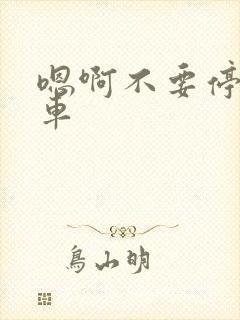 嗯啊不要停
車
鳥山明